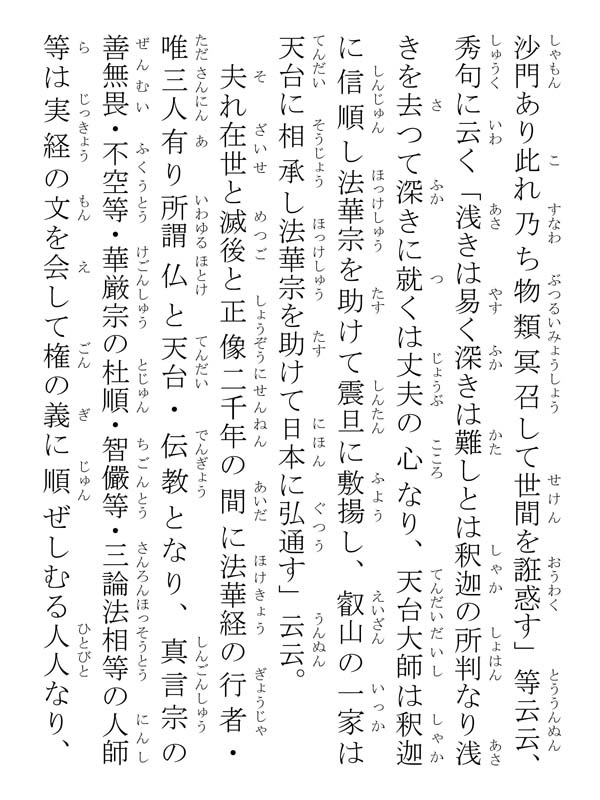 沙門あり此れ乃ち物類冥召して世間を誑惑す」等云云、
秀句に云く「浅きは易く深きは難しとは釈迦の所判なり浅
きを去つて深きに就くは丈夫の心なり、天台大師は釈迦
に信順し法華宗を助けて震旦に敷揚し、叡山の一家は
天台に相承し法華宗を助けて日本に弘通す」云云。
夫れ在世と滅後と正像二千年の間に法華経の行者・
唯三人有り所謂仏と天台・伝教となり、真言宗の
善無畏・不空等・華厳宗の杜順・智儼等・三論法相等の人師
等は実経の文を会して権の義に順ぜしむる人人なり、